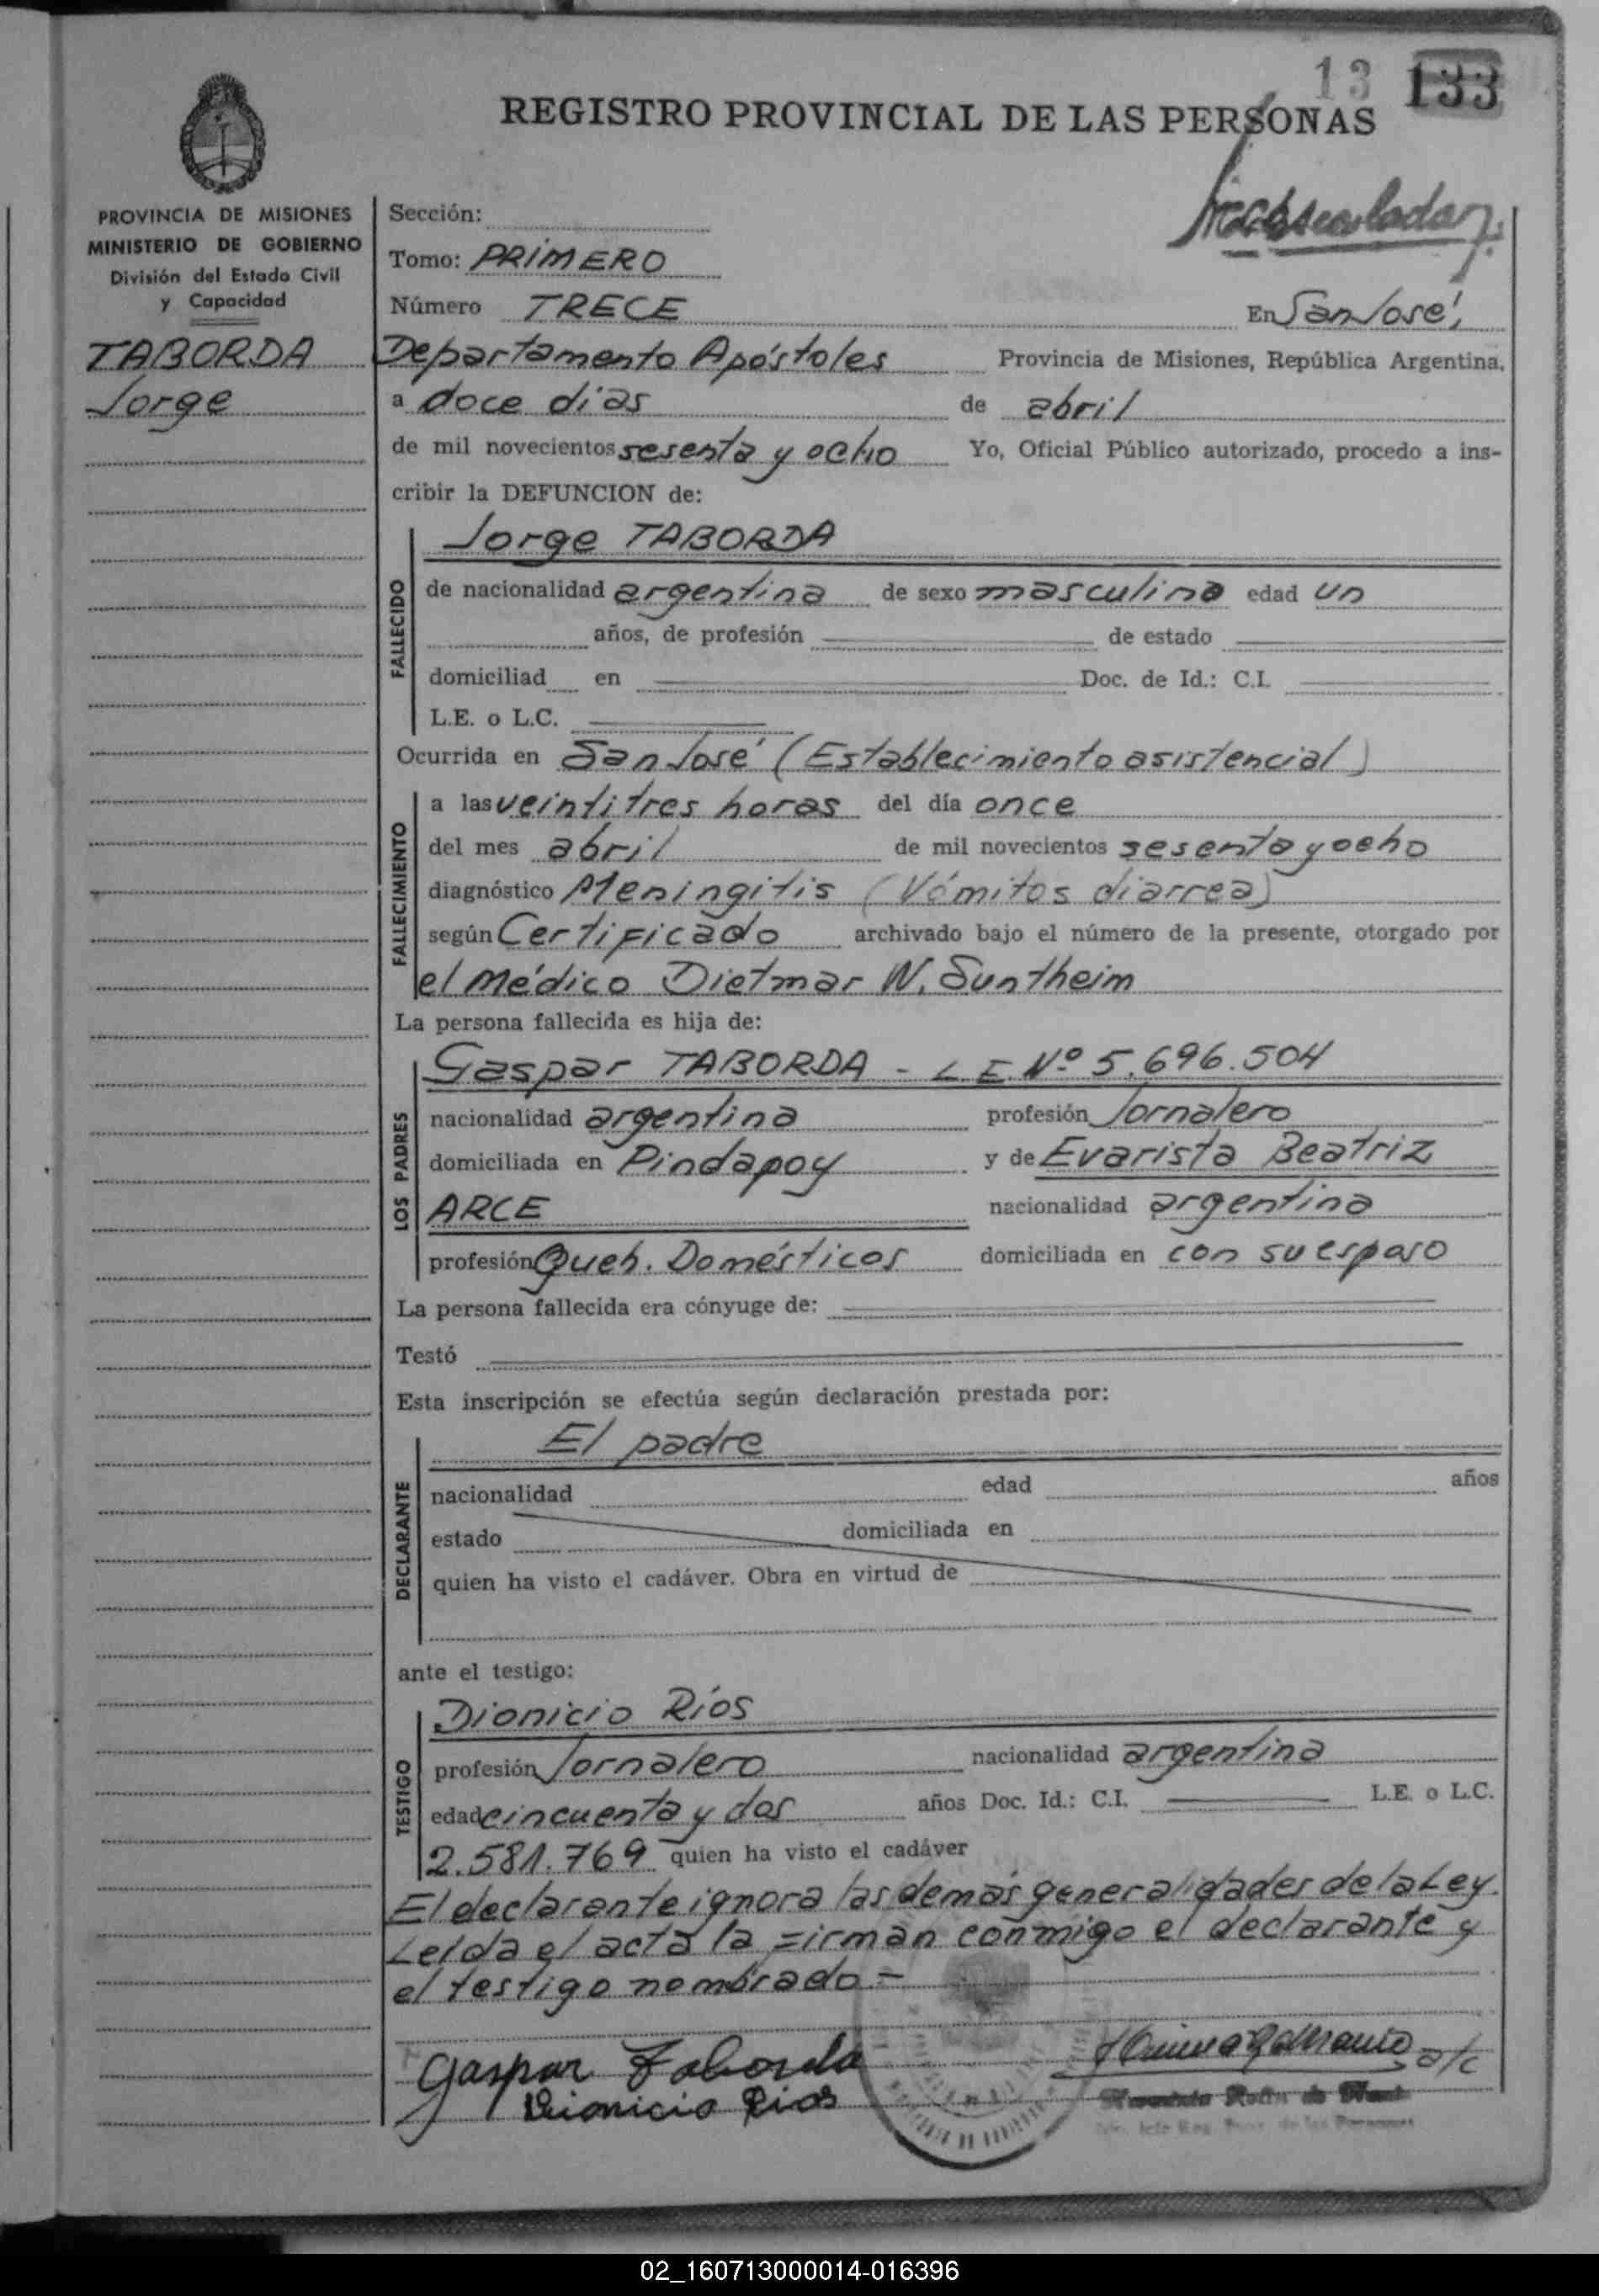 13 133
REGISTRO PROVINCIAL DE LAS PERSONAS
PROVINCIA DE MISIONES
MINISTERIO DE GOBIERNO
División del Estado Civil
y Capacidad
TABORDA
Jorge
Sección:
Tomo: PRIMERO
Número TRECE En San José,
Departamento Apóstoles Provincia de Misiones, República Argentina,
a doce días de abril
de mil novecientos sesenta y ocho Yo, Oficial Público autorizado, procedo a ins-
cribir la DEFUNCION de:
FALLECIDO
Jorge TABORDA
de nacionalidad argentina de sexo masculino edad un
años, de profesión de estado
domiciliad en Doc. de Id.: C.I.
L.E. o L.C.
Ocurrida en San José (Establecimiento asistencial)
FALLECIMIENTO
a las veintitres horas del día once
del mes abril de mil novecientos sesenta y ocho
diagnóstico Meningitis (Vómitos diarrea)
según Certificado archivado bajo el número de la presente, otorgado por
el médico Dietmar W. Suntheim
La persona fallecida es hija de:
LOS PADRES
Gaspar TABORDA - L E. Nº 5.696.504
nacionalidad argentina profesión Jornalero
domiciliada en Pindapoy y de Evarista Beatriz
ARCE nacionalidad argentina
profesión Queh. Domésticos domiciliada en con su esposo
La persona fallecida era cónyuge de:
Testó
Esta inscripción se efectúa según declaración prestada por:
DECLARANTE
El padre
nacionalidad edad años
estado domiciliada en
quien ha visto el cadáver. Obra en virtud de
ante el testigo:
TESTIGO
Dionicio Ríos
profesión Jornalero nacionalidad argentina
edad cincuenta y dos años Doc. Id.: C.I. L.E. o L.C.
2.581.769 quien ha visto el cadáver
El declarante ignora las demás generalidades de la Ley.
Leída el acta la firman conmigo el declarante y
el testigo nombrado -
Gaspar Taborda
Dionicio Rios
a/c
02_160713000014-016396